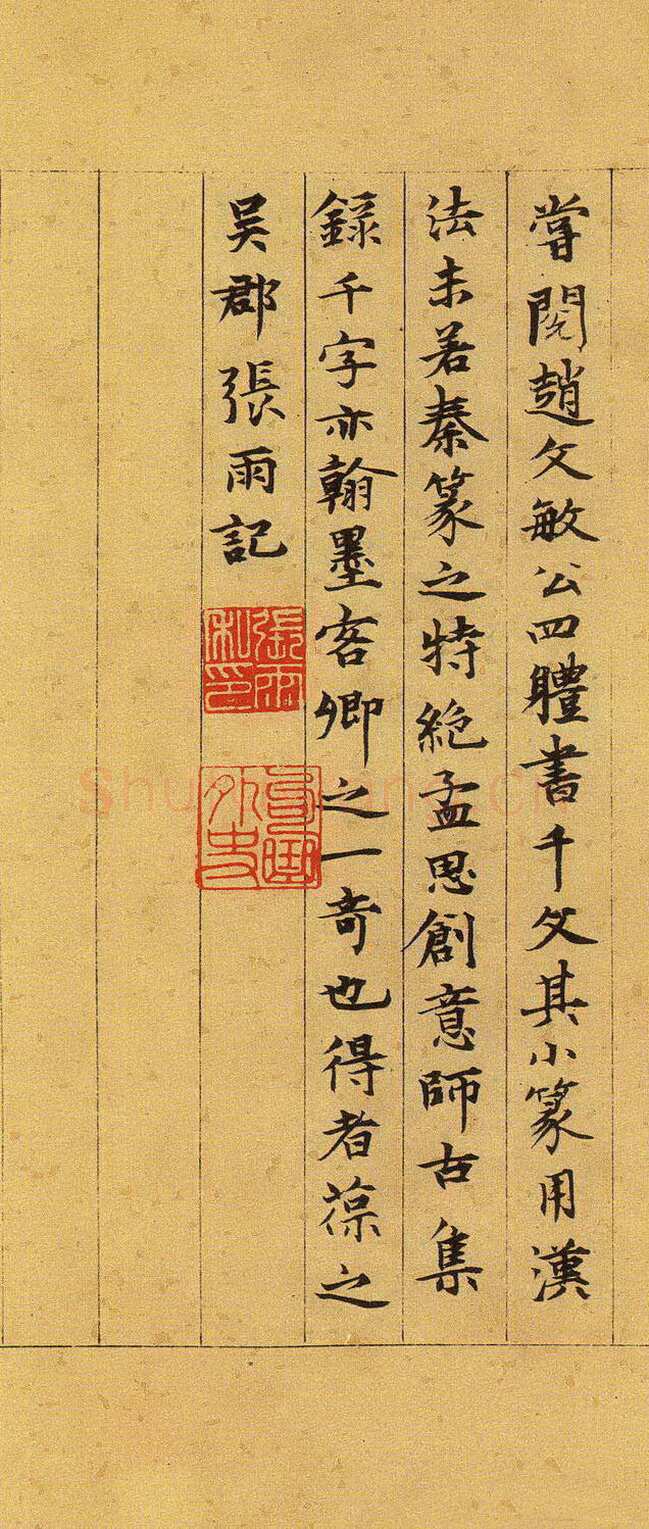 嘗閱趙文敏公四體書千文其小篆用漢
法未若秦篆之特絕孟思創意師古集
錄千字亦翰墨客卿之一奇也得者葆之
吳郡張雨記
張雨私印
句曲外史